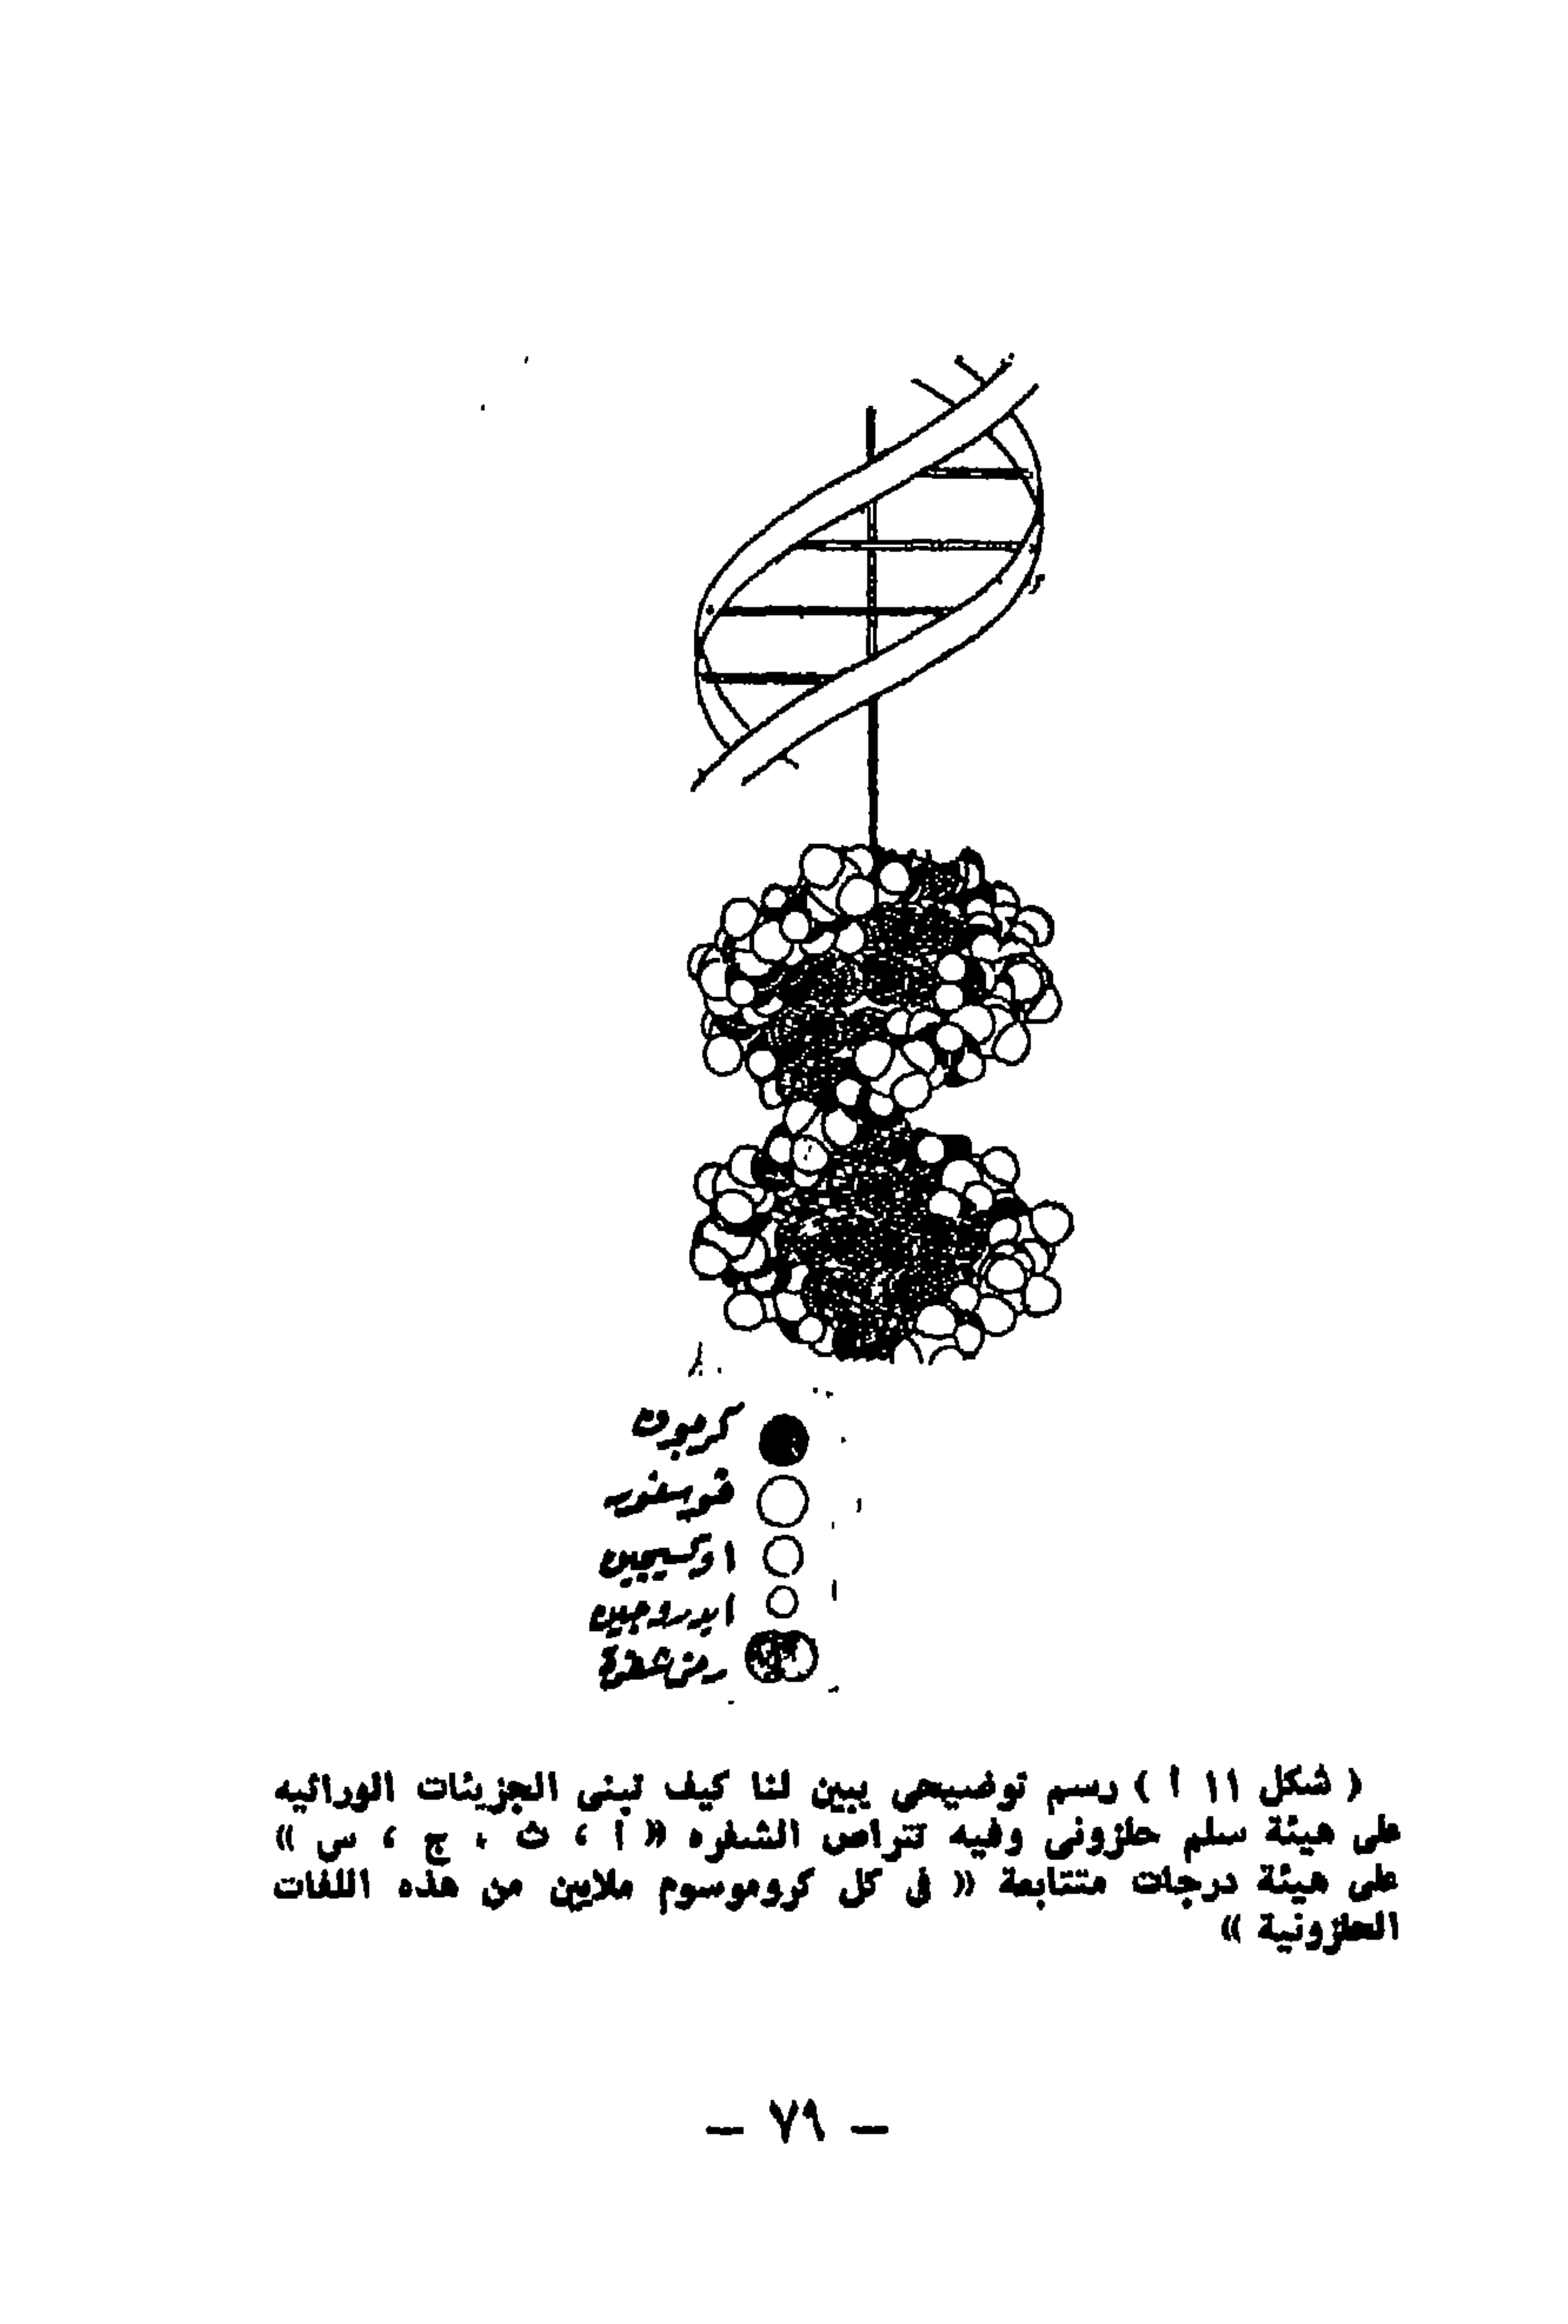 كربون
فوسفور
اوكسيجين
ايدروجين
رمز شفرة
( شكل ١١ أ ) رسم توضيحى يبين لنا كيف تبنى الجزيئات الوراثيه
على هيئة سلم حلزونى وفيه تتراص الشفره « أ ، ث ، ج ، س »
على هيئة درجات متتابعة « فى كل كروموسوم ملايين من هذه اللفات
الحلزونية »
— ٧٩ —